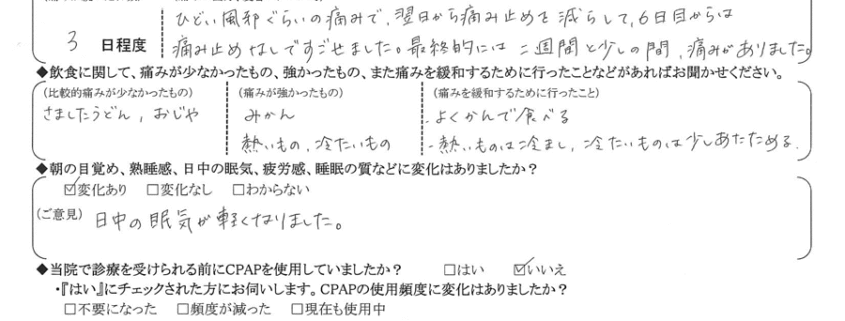 ひどい風邪ぐらいの痛みで、翌日から痛み止めを減らして、6日目からは
3 日程度 痛み止めなしですごせました。最終的には二週間と少しの間、痛みがありました。
◆飲食に関して、痛みが少なかったもの、強かったもの、また痛みを緩和するために行ったことなどがあればお聞かせください。
(比較的痛みが少なかったもの) (痛みが強かったもの) (痛みを緩和するために行ったこと)
さましたうどん, おじや みかん ・よくかんで食べる
熱いもの、冷たいもの ・熱いものは冷まし、冷たいものは少しあたためる.
◆朝の目覚め、熟睡感、日中の眠気、疲労感、睡眠の質などに変化はありましたか?
☑変化あり □変化なし □わからない
(ご意見) 日中の眠気が軽くなりました。
◆当院で診療を受けられる前にCPAPを使用していましたか? □はい ☑いいえ
・『はい』にチェックされた方にお伺いします。CPAPの使用頻度に変化はありましたか?
□不要になった □頻度が減った □現在も使用中